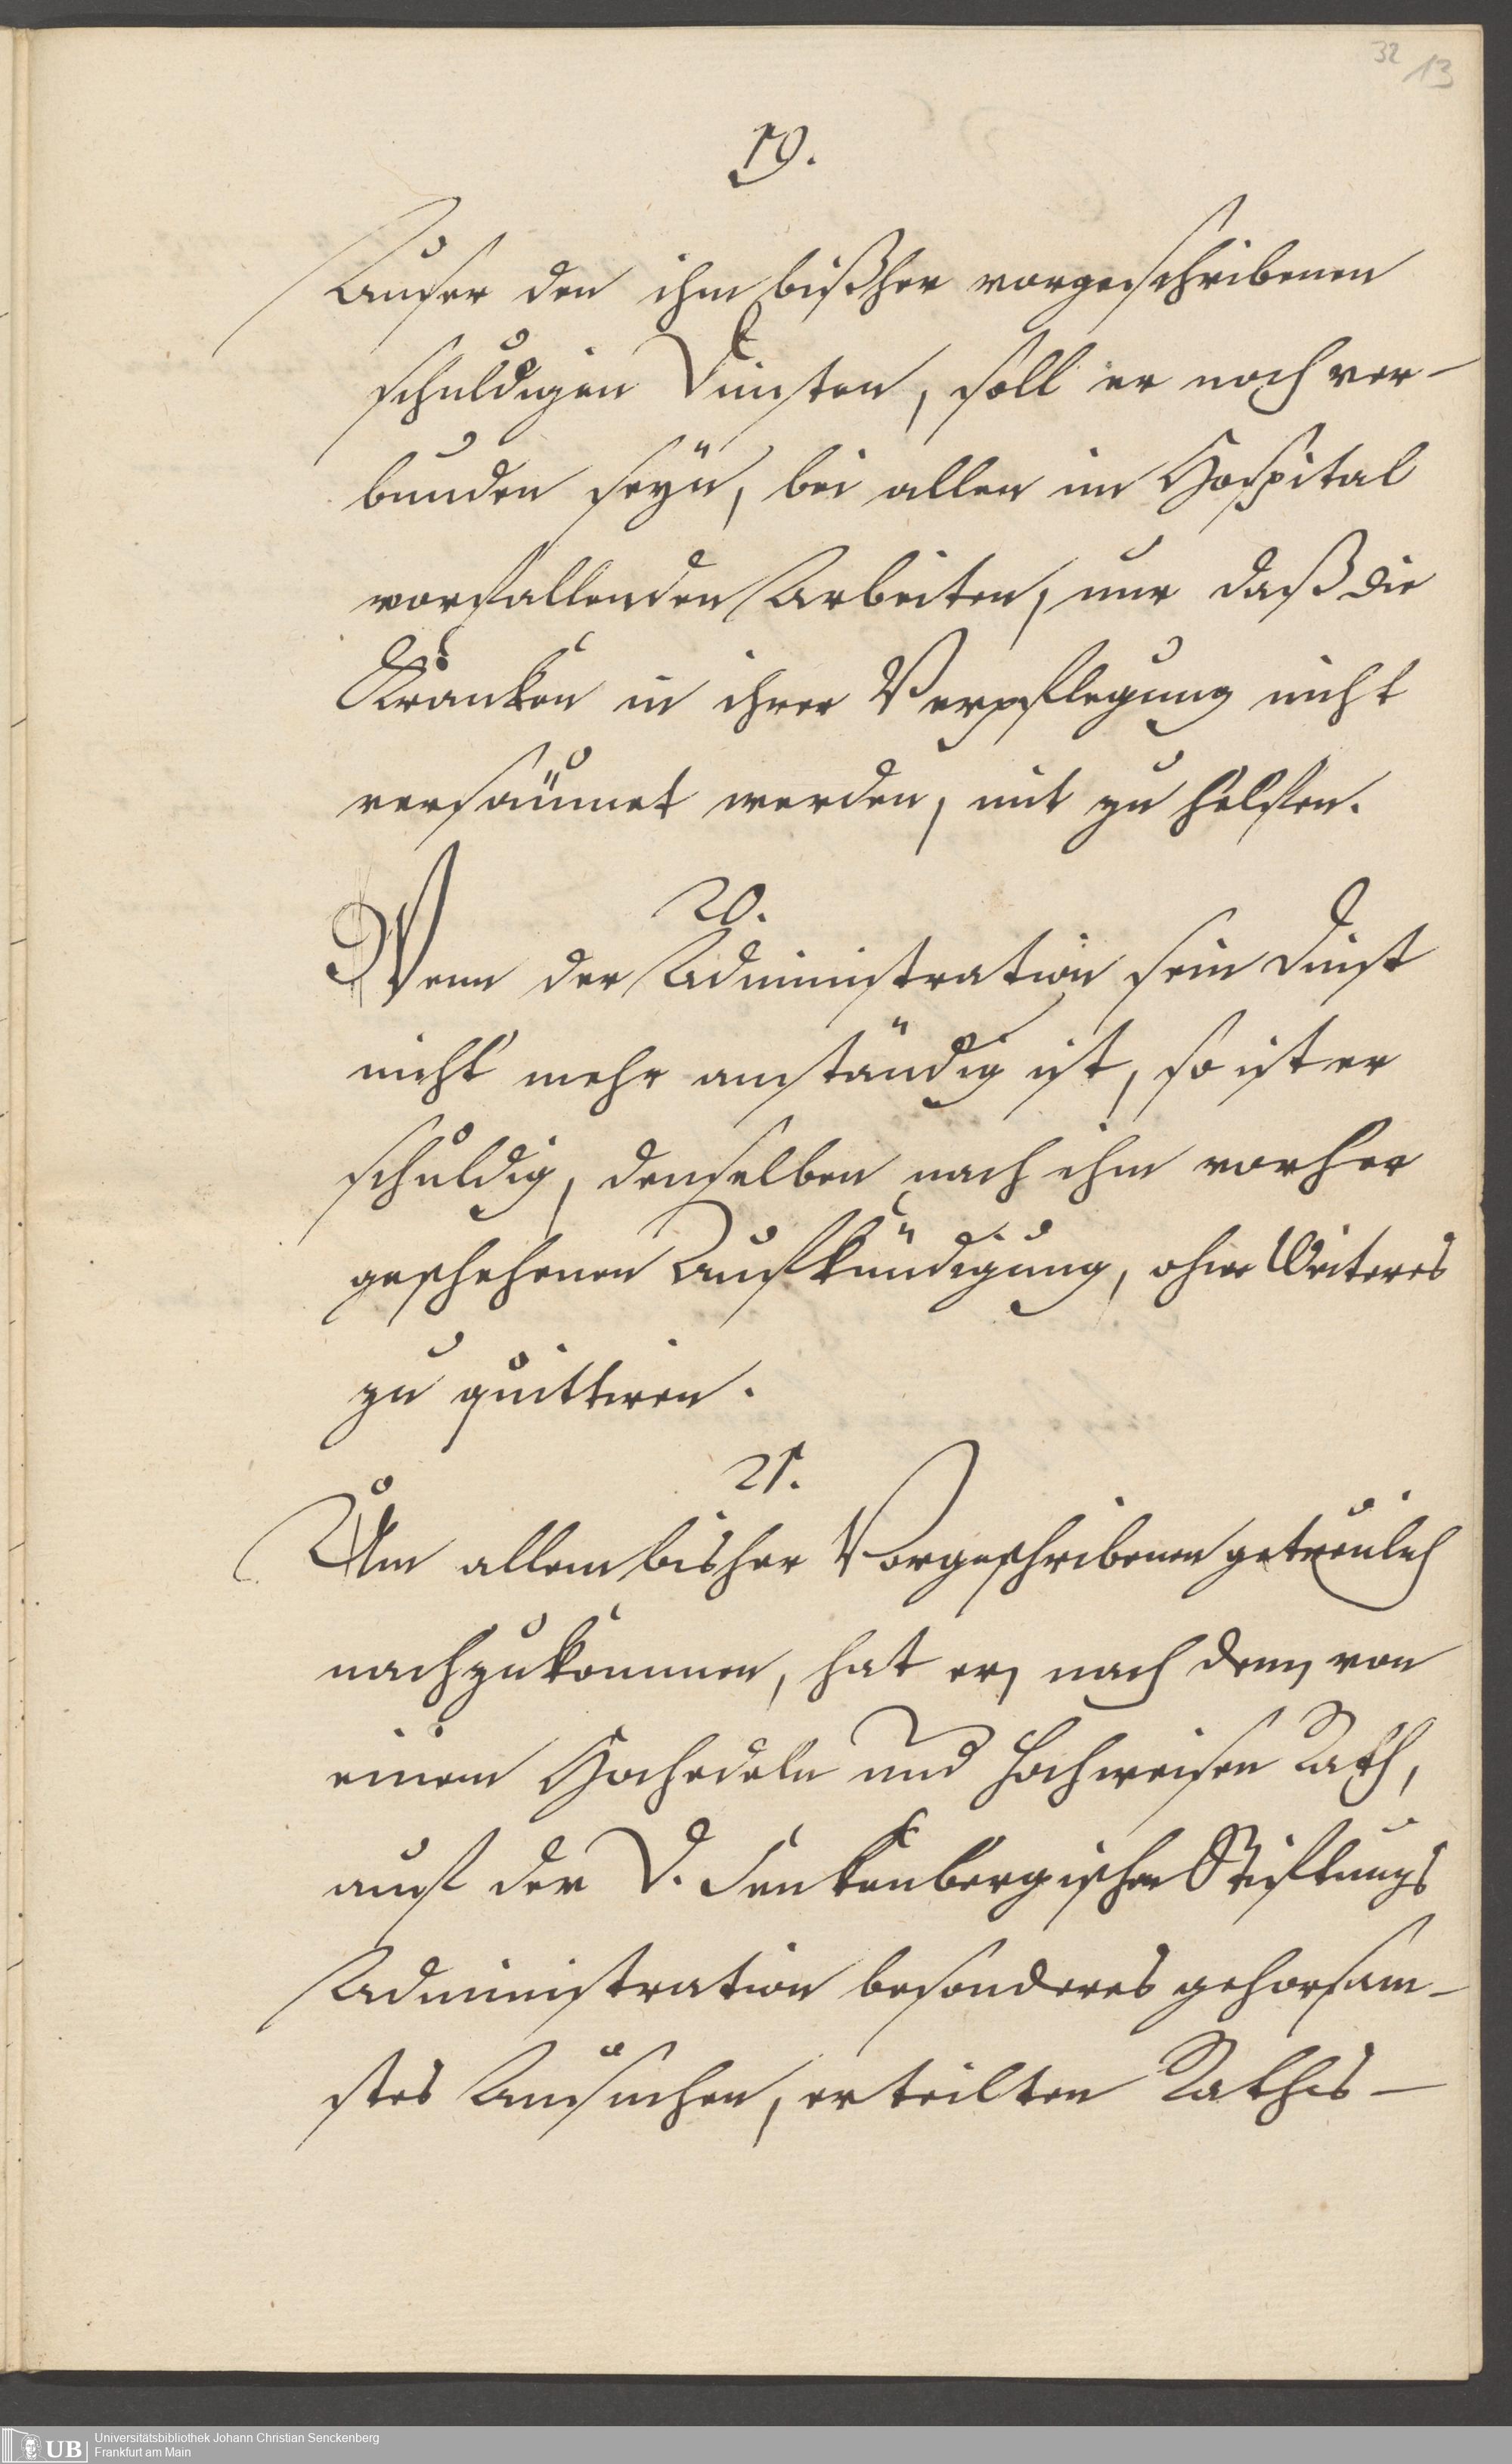 32 13
19.
Auser den ihm bißher vorgeschribenen
schuldigen Dinsten, soll er noch ver-
bunden seÿn, bei allen im Hospital
vorfallenden Arbeiten, nur daß die
Kranken in ihrer Verpflegung nicht
versäumet werden, mit zu helfen.
20.
Wenn der Administration sein Dinst
nicht mehr anständig ist, so ist er
schuldig, denselben nach ihm vorher
geschehenen Aufkündigung, ohne Weiteres
zu quittiren.
21.
Um allem bisher Vorgeschribenen getreulich
nachzukommen, hat er, nach dem, von
einem Hochedeln und Hochweisen Rath,
auf der D. Senkenbergischen Stiftungs
Administration besonderes gehorsam-
stes Ansuchen, erteilten Raths-
UB
Universitätsbibliothek Johann Christian Senckenberg
Frankfurt am Main